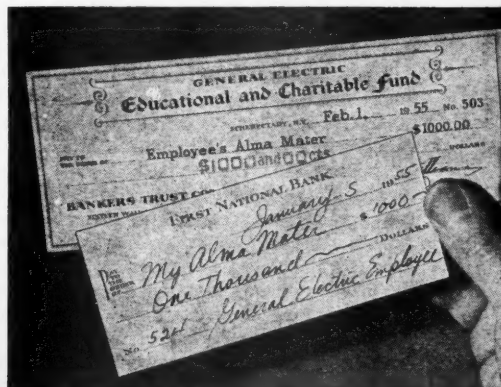 GENERAL ELECTRIC
Educational and Charitable Fund
SCHENECTADY, N.Y. Feb. 1, 1955 No. 503
PAY TO THE ORDER OF Employee's Alma Mater $1000.00
$1000 and 00 cts DOLLARS
BANKERS TRUST CO
FIRST NATIONAL BANK
January 5 1955
PAY TO THE ORDER OF My Alma Mater $1000
One Thousand DOLLARS
No. 524 General Electric Employee